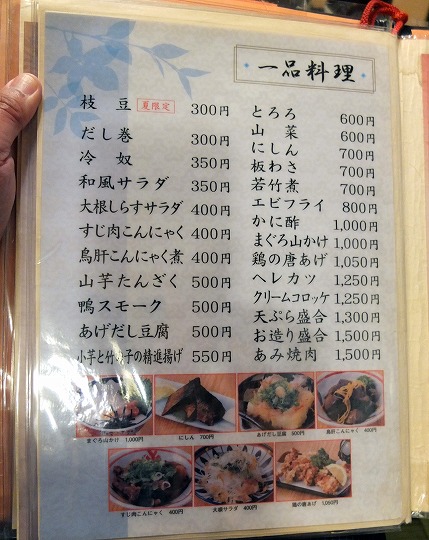 一品料理
枝豆 夏限定 300円
だし巻 300円
冷奴 350円
和風サラダ 350円
大根しらすサラダ 400円
すじ肉こんにゃく 400円
鳥肝こんにゃく煮 400円
山芋たんざく 500円
鴨スモーク 500円
あげだし豆腐 500円
小芋と竹の子の精進揚げ 550円
とろろ 600円
山菜 600円
にしん 700円
板わさ 700円
若竹煮 700円
エビフライ 800円
かに酢 1,000円
まぐろ山かけ 1,000円
鶏の唐あげ 1,050円
ヘレカツ 1,250円
クリームコロッケ 1,250円
天ぷら盛合 1,300円
お造り盛合 1,500円
あみ焼肉 1,500円
まぐろ山かけ 1,000円
にしん 700円
あげだし豆腐 500円
鳥肝こんにゃく 400円
すじ肉こんにゃく 400円
大根サラダ 400円
鶏の唐あげ 1,050円